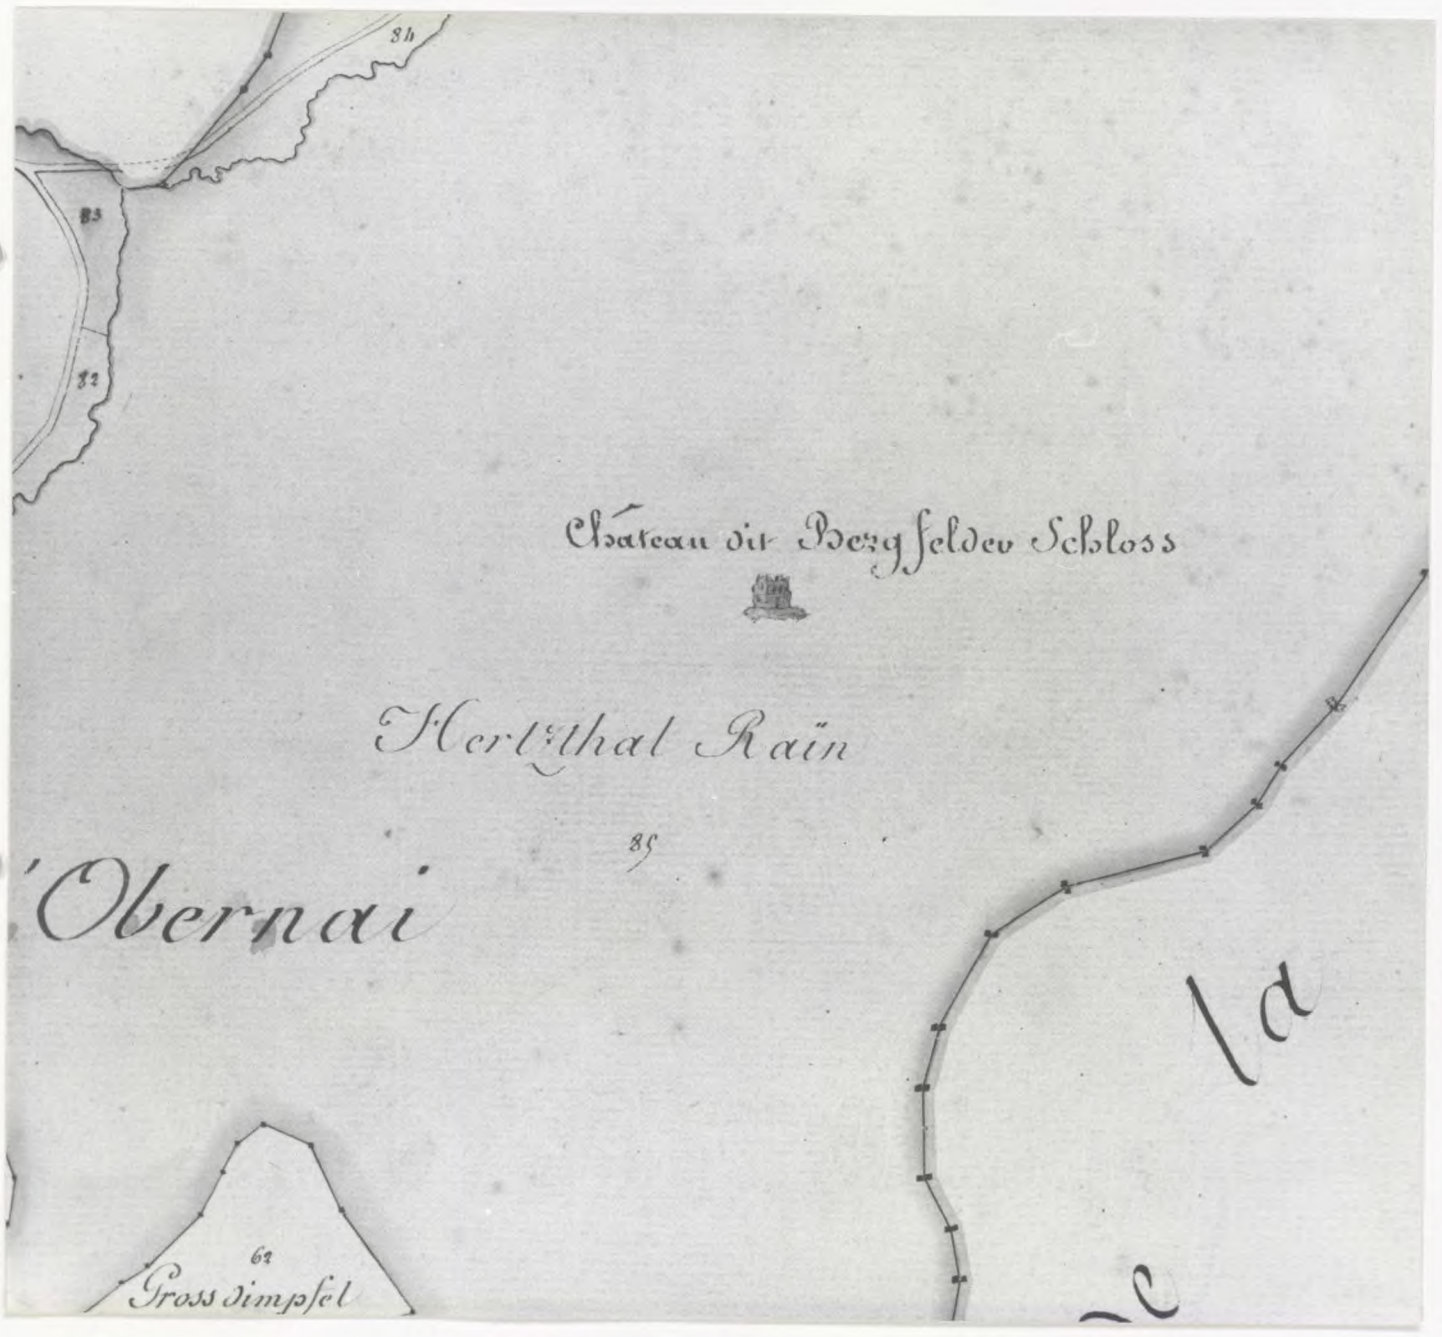 84
83
82
Château dit Bergfelder Schloss
Hertzthal Raïn
85
'Obernai
la
62
Grossdimpfel